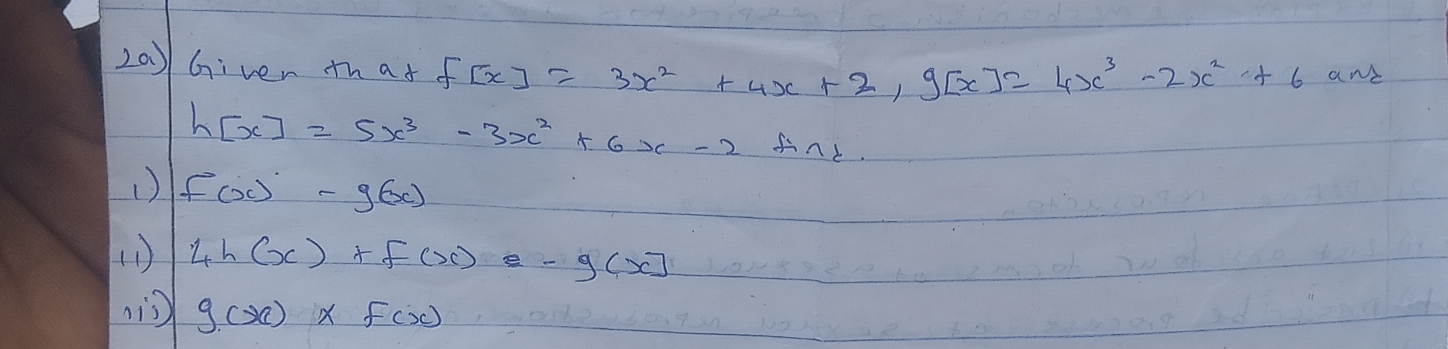 2a) Given that f[x] = 3x² + 4x + 2, g[x] = 4x³ - 2x² + 6 and
h[x] = 5x³ - 3x² + 6x - 2 find.
i) f(x) - g(x)
ii) 4h(x) + f(x) - g(x]
iii) g(x) x f(x)